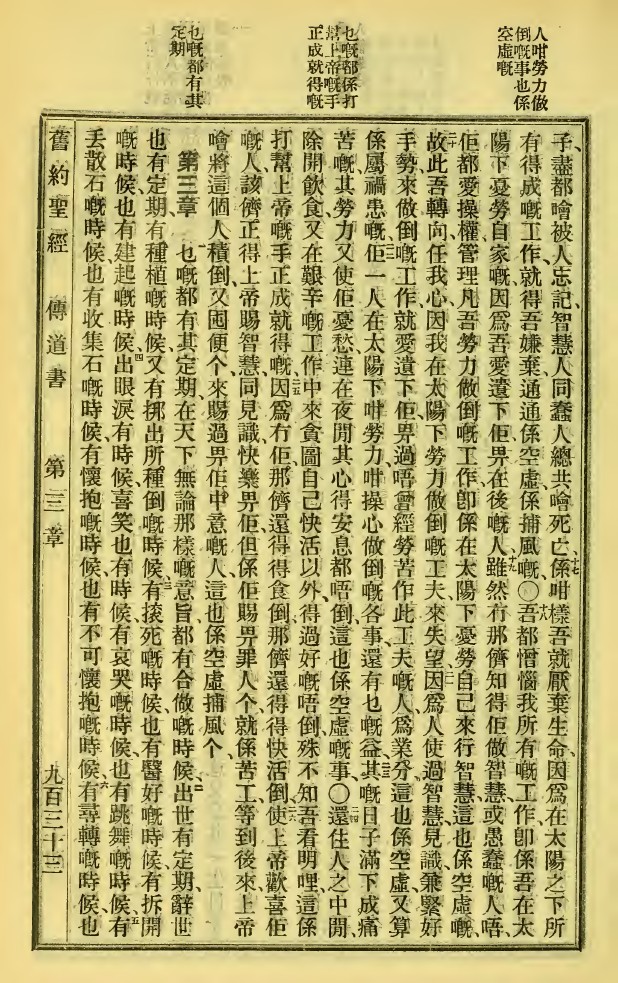 人咁勞力做
倒嘅事也係
空虛嘅
乜嘅都係打
幫上帝嘅手
正成就得嘅
乜嘅都有其
定期
子盡都噲被人忘記智慧人同蠢人總共噲死亡十七係咁樣吾就厭棄生命因爲在太陽之下所
有得成嘅工作就得吾嫌棄通通係空虛係捕風嘅〇十八吾都憎惱我所有嘅工作卽係吾在太
陽下憂勞自家嘅因爲吾愛遺下佢畀在後嘅人十九雖然冇那儕知得佢做智慧或愚蠢嘅人唔
佢都愛操權管理凡吾勞力做倒嘅工作卽係在太陽下憂勞自己來行智慧這也係空虛嘅
二十故此吾轉向任我心因我在太陽下勞力做倒嘅工夫來失望二一因爲人使過智慧見識兼緊好
手勢來做倒嘅工作就愛遺下佢畀過唔曾經勞苦作此工夫嘅人爲業分這也係空虛又算
係屬禍患嘅二二佢一人在太陽下咁勞力咁操心做倒嘅各事還有乜嘅益二三其嘅日子滿下成痛
苦嘅其勞力又使佢憂愁連在夜間其心得安息都唔倒這也係空虛嘅事〇二四還住人之中間
除開飲食又在艱辛嘅工作中來貪圖自己快活以外得過好嘅唔倒殊不知吾看明哩這係
打幫上帝嘅手正成就得嘅二五因爲冇佢那儕還得得食倒那儕還得得快活倒二六使上帝歡喜佢
嘅人該儕正得上帝賜智慧同見識快樂畀佢但係佢賜畀罪人个就係苦工等到後來上帝
噲將這個人積倒又囤便个來賜過畀佢中意嘅人這也係空虛捕風个
第三章 一乜嘅都有其定期在天下無論那樣嘅意旨都有合做嘅時候二出世有定期辭世
也有定期有種植嘅時候又有挪出所種倒嘅時候三有拔死嘅時候也有醫好嘅時候有拆開
嘅時候也有建起嘅時候四出眼淚有時候喜笑也有時候有哀哭嘅時候也有跳舞嘅時候五有
丟散石嘅時候也有收集石嘅時候有懷抱嘅時候也有不可懷抱嘅時候六有尋轉嘅時候也
舊約聖經 傳道書 第三章 九百三十三